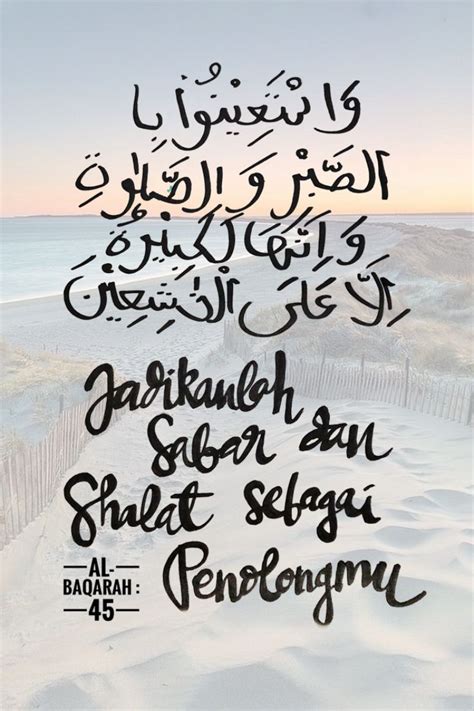 وَاسْتَعِيْنُوْا بِا
الصَّبْرِ وَالصَّلٰوةِ
وَاِنَّهَا لَكَبِيْرَةٌ
اِلَّا عَلَى الْخٰشِعِيْنَ
Jadikanlah
Sabar dan
Shalat sebagai
Penolongmu
AL-
BAQARAH :
45